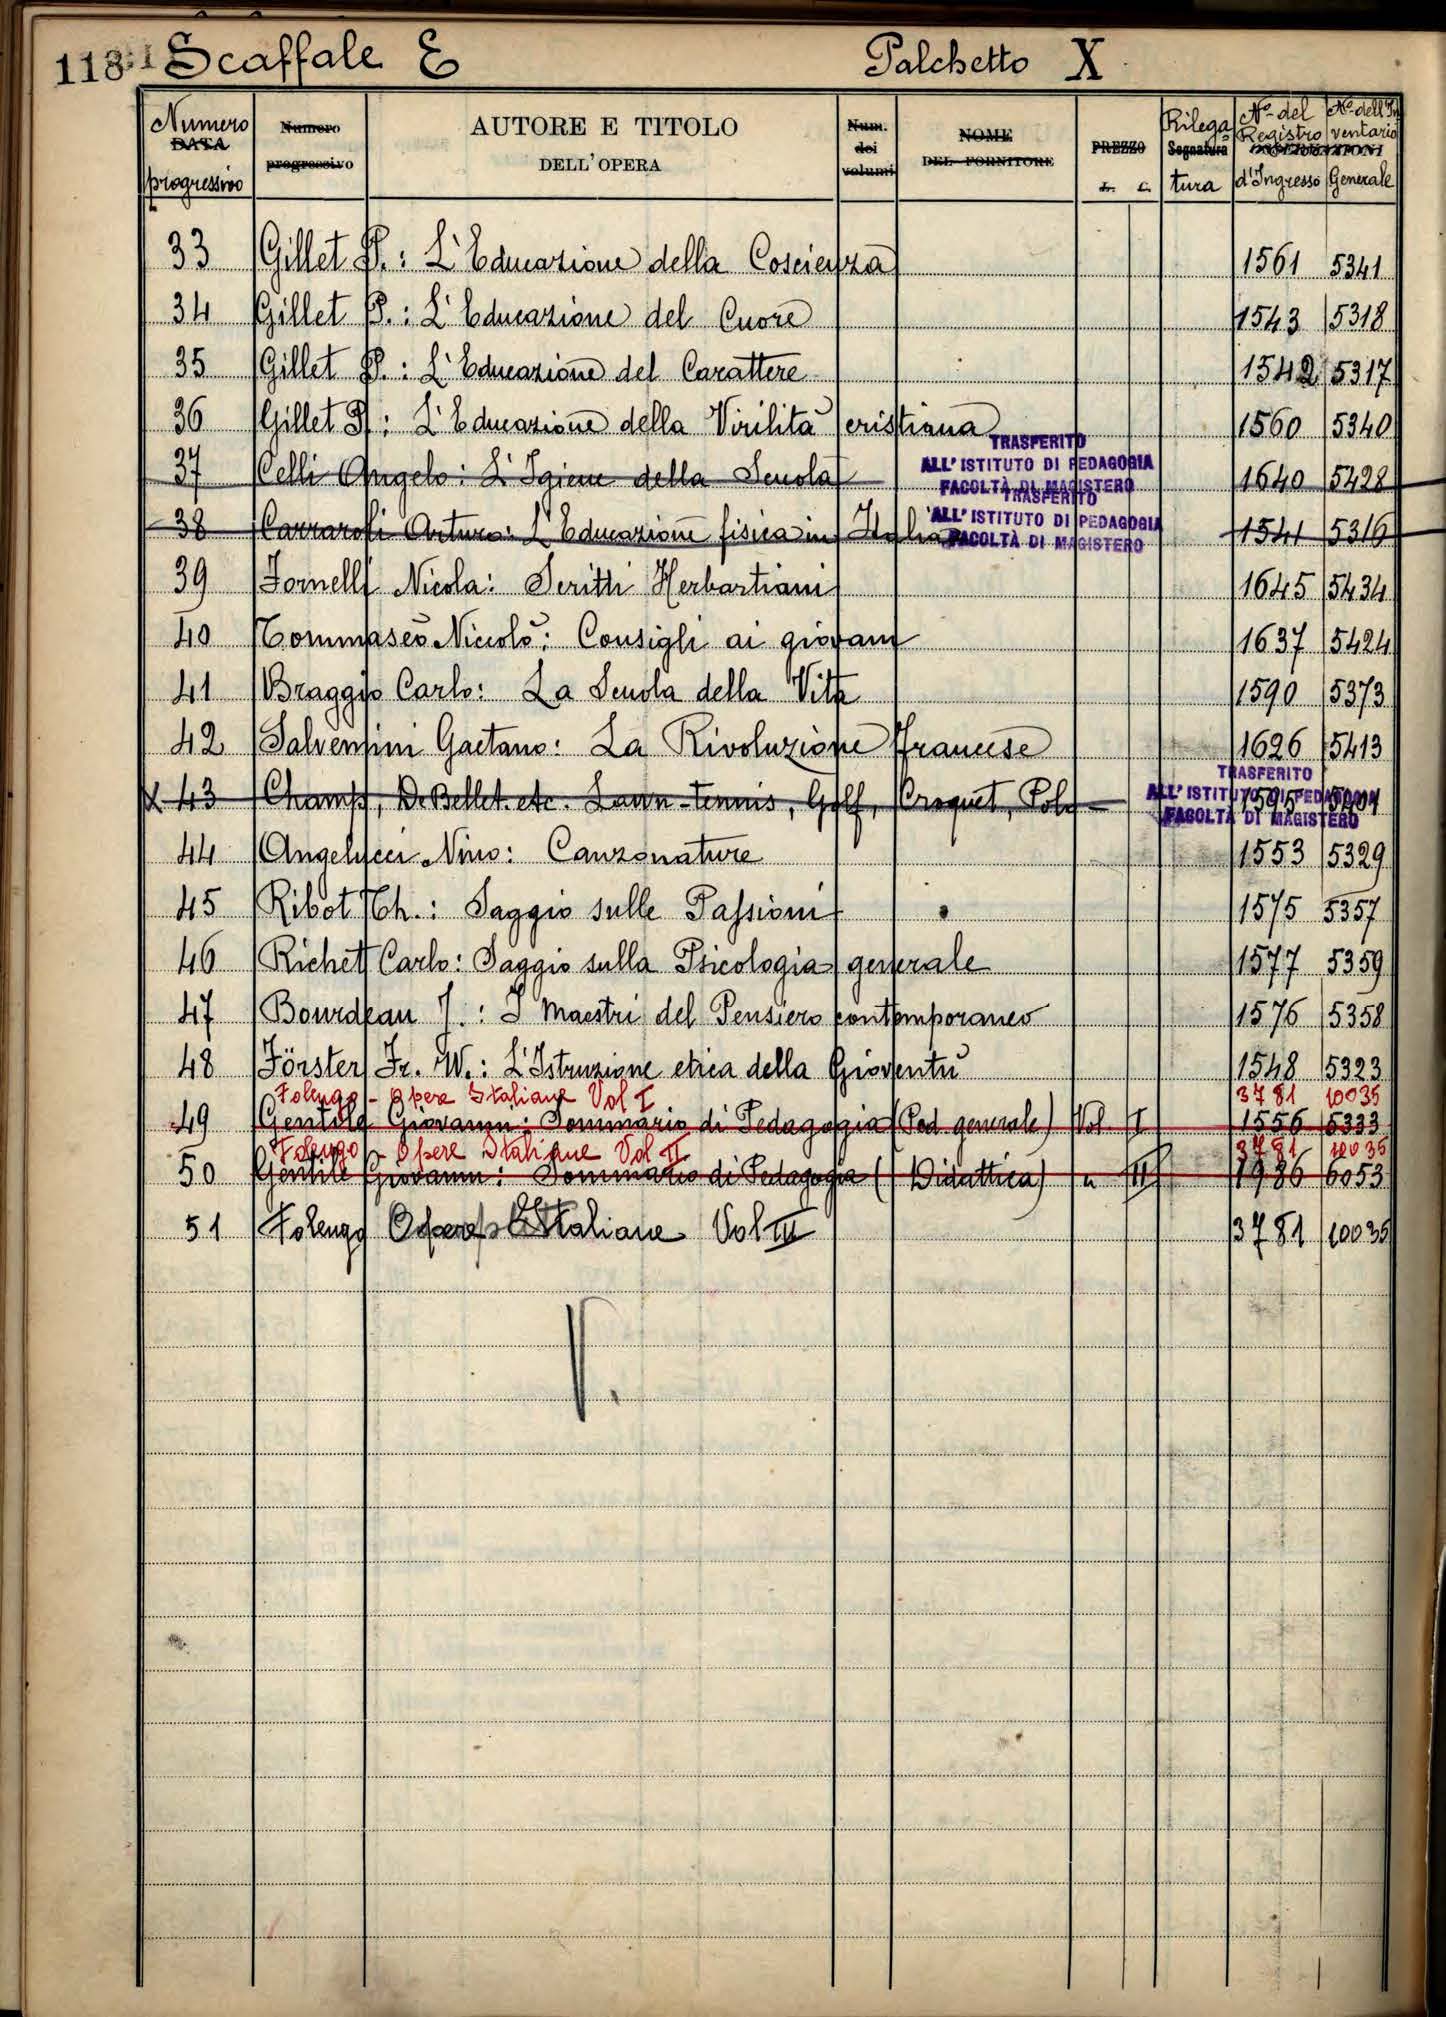 118 Scaffale E Palchetto X
Numero DATA progressivo Numero progressivo AUTORE E TITOLO DELL'OPERA Num. dei volumi NOME DEL FORNITORE PREZZO L. C. Rilega Segnatura tura No. del Registro d'Ingresso OSSERVAZIONI No. dell'Inventario Generale
33 Gillet P.: L'Educazione della Coscienza 1561 5341
34 Gillet P.: L'Educazione del Cuore 1543 5318
35 Gillet P.: L'Educazione del Carattere 1542 5317
36 Gillet P.: L'Educazione della Virilità cristiana 1560 5340
TRASFERITO
ALL'ISTITUTO DI PEDAGOGIA
FACOLTÀ DI MAGISTERO
37 Celli Angelo: L'Igiene della Scuola 1640 5428
TRASFERITO
ALL'ISTITUTO DI PEDAGOGIA
FACOLTÀ DI MAGISTERO
38 Carraroli Arturo: L'Educazione fisica in Italia 1541 5316
39 Fornelli Nicola: Scritti Herbartiani 1645 5434
40 Tommaseo Niccolò: Consigli ai giovani 1637 5424
41 Braggio Carlo: La Scuola della Vita 1590 5373
42 Salvemini Gaetano: La Rivoluzione francese 1626 5413
TRASFERITO
ALL'ISTITUTO DI PEDAGOGIA
FACOLTÀ DI MAGISTERO
X 43 Champ, De Bellet. etc. Lawn-tennis, Golf, Croquet, Polo 1595 5401
44 Angelucci Nino: Canzonature 1553 5329
45 Ribot Th.: Saggio sulle Passioni 1575 5357
46 Richet Carlo: Saggio sulla Psicologia generale 1577 5359
47 Bourdeau J.: I Maestri del Pensiero contemporaneo 1576 5358
48 Förster Fr. W.: L'Istruzione etica della Gioventù 1548 5323
Folengo - Opere Italiane Vol I 3781 10035
49 Gentile Giovanni: Sommario di Pedagogia (Ped. generale) Vol. I 1556 5333
Folengo - Opere Italiane Vol II 3781 10035
50 Gentile Giovanni: Sommario di Pedagogia (Didattica) " II 1986 6053
51 Folengo Opere Italiane Vol III 3781 10035
V.